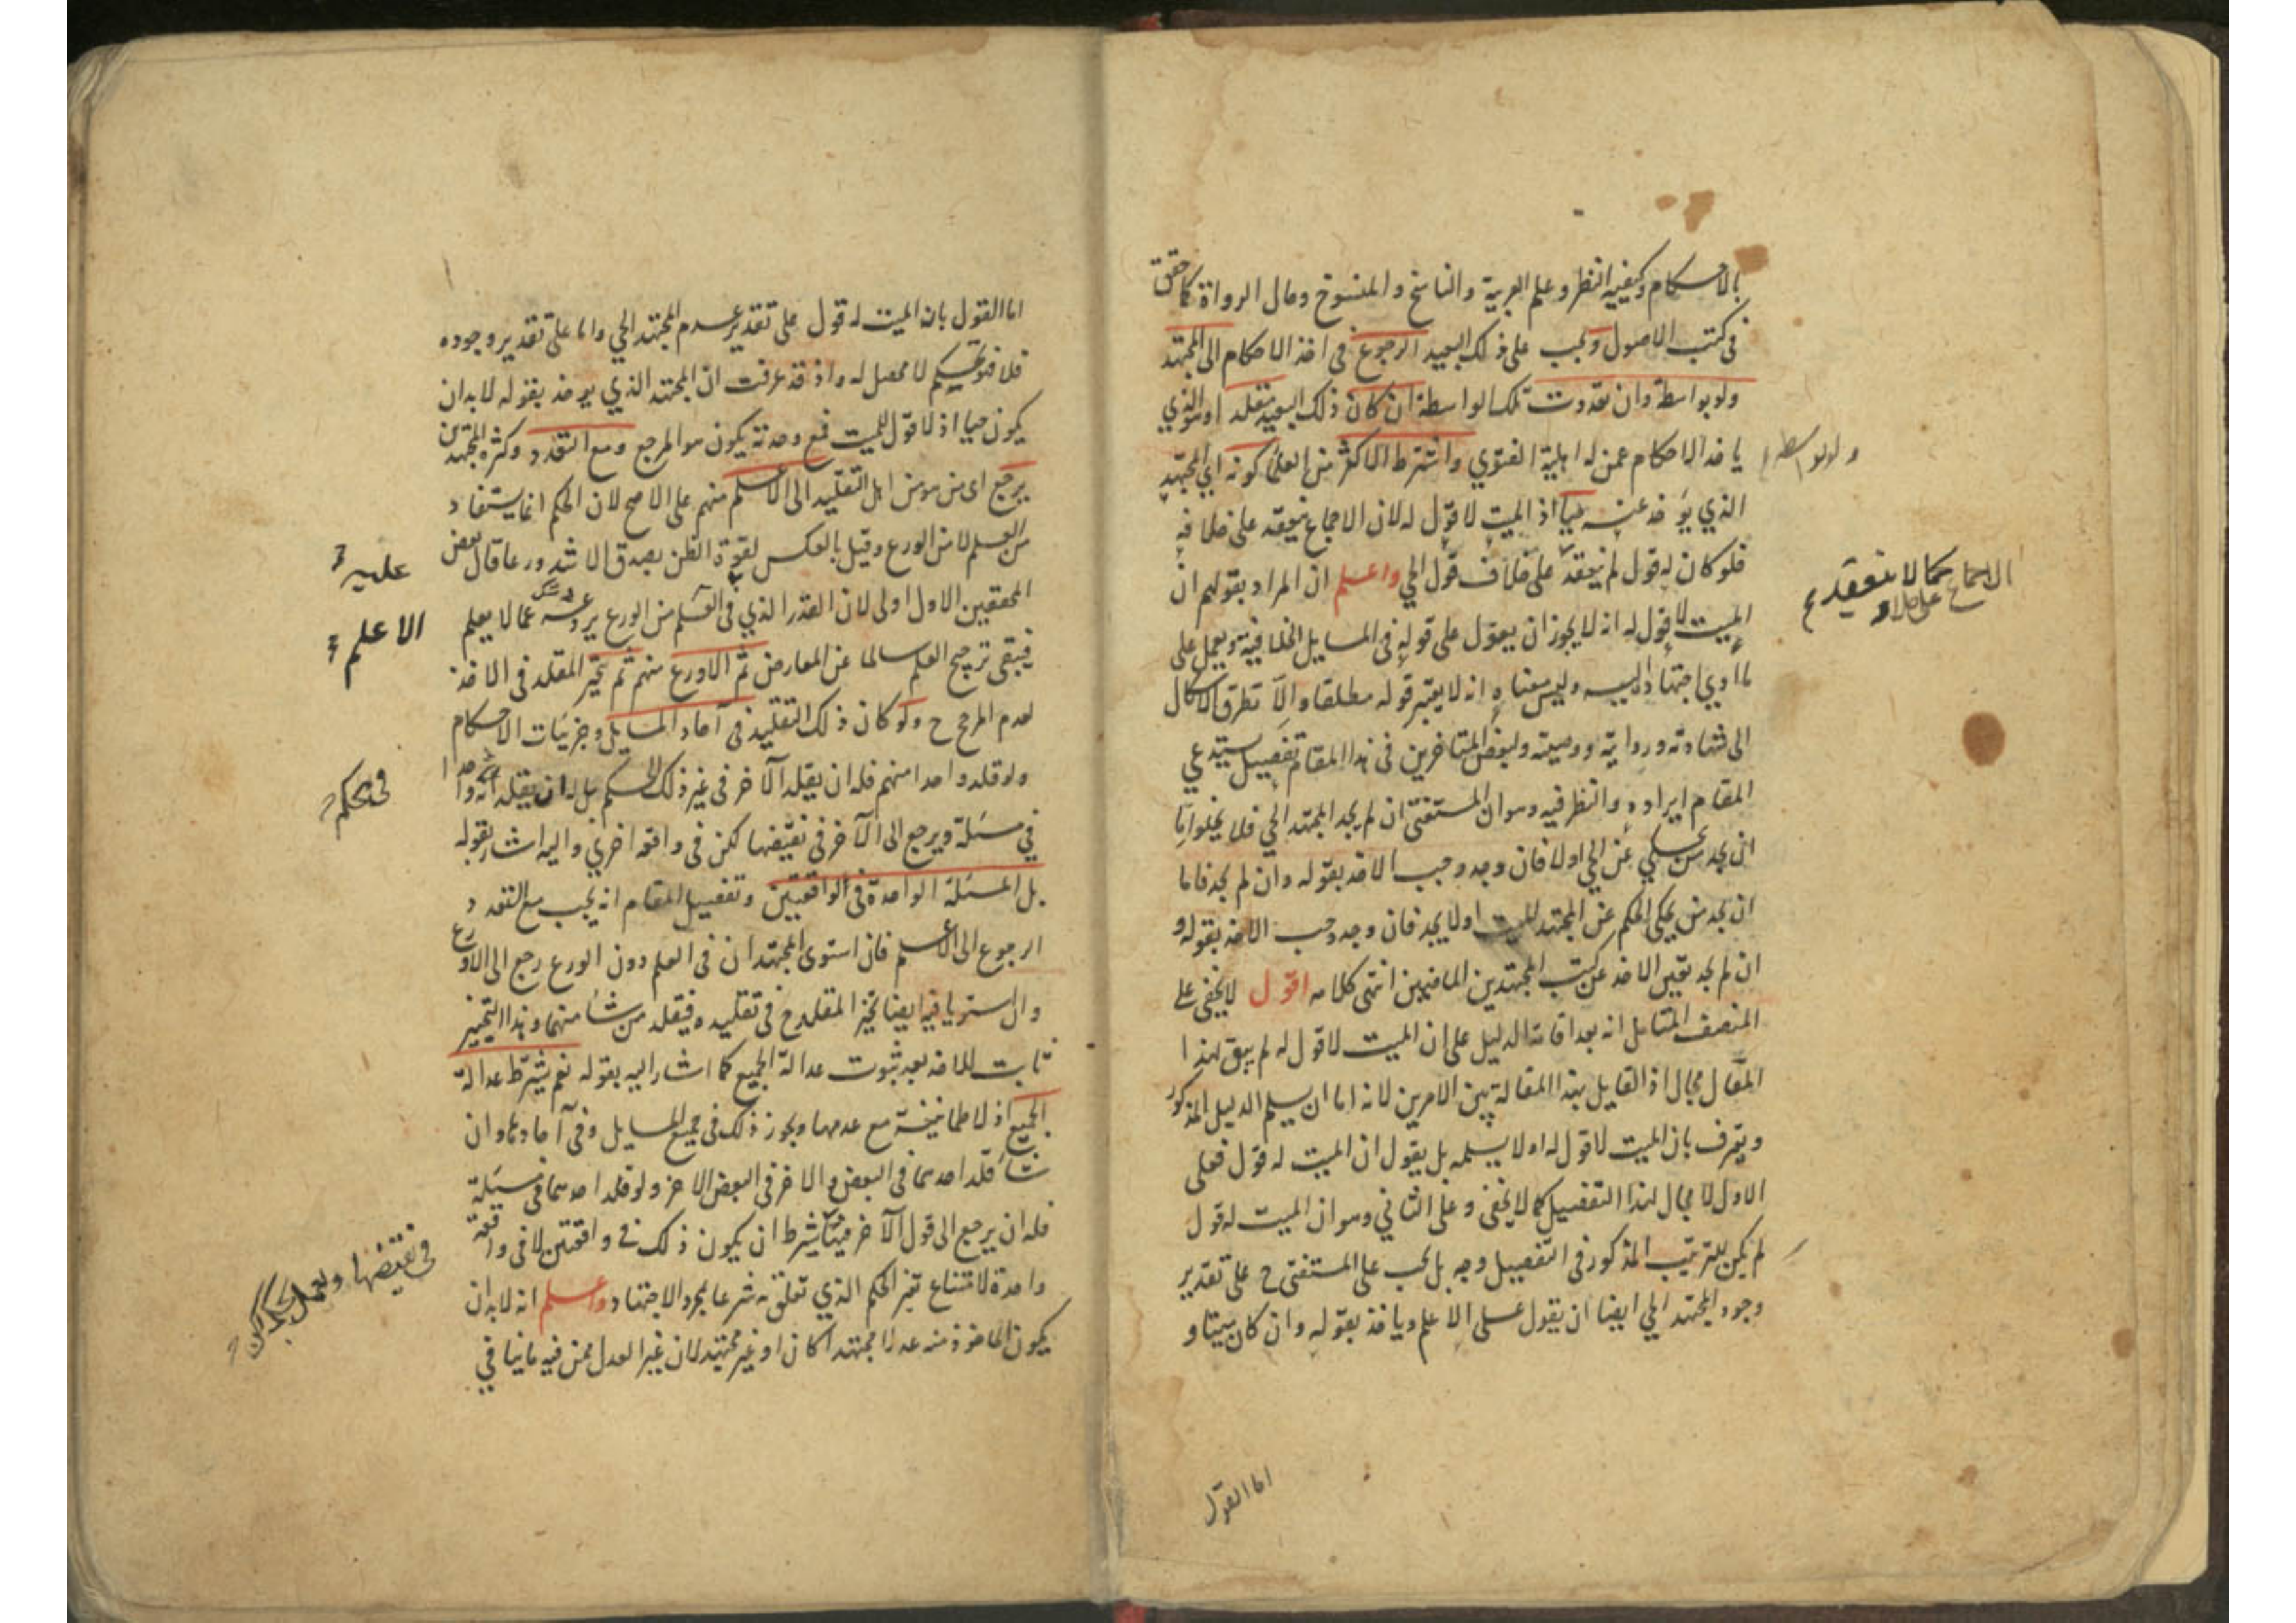 بالاحكام وكيفية النظر وعلم العربية والناسخ والمنسوخ وحال الرواة كما حقق
في كتب الاصول ويجب على ذلك البعيد الرجوع في اخذ الاحكام الى المجتهد
ولو بواسطة وان تعددت تلك الواسطة ان كان ذلك البعيد مقلد او هو الذي
ياخذ الاحكام عمن له اهلية الفتوي واشترط الاكثر من العلما كونه اي المجتهد
ولو بواسطة
الذي يؤخذ عنه حيا اذ الميت لا قول له لان الاجماع ينعقد على خلافه
فلو كان له قول لم ينعقد على خلاف قول الحي واعلم ان المراد بقولهم ان
الاجماع كما لا ينعقد
الميت لا قول له انه لا يجوز ان يعول على قوله في المسايل الخلافية ويعمل على
ما ادي اجتهاده اليه وليس معناه انه لا يعتبر قوله مطلقا والا تطرق الاشكال
الى شهادته وروايته ووصيته ولبعض المتاخرين في هذا المقام تفصيل يستدعي
المقام ايراده والنظر فيه وهو ان المستفتي ان لم يجد المجتهد الحي فلا يخلو اما
ان يجد من يحكي عن الحي اولا فان وجد وجب الاخذ بقوله وان لم يجد فاما
ان يجد من يحكي الحكم عن المجتهد الميت او لا يجد فان وجد وجب الاخذ بقوله و
ان لم يجد تعين الاخذ عن كتب المجتهدين الماضيين انتهى كلامه اقول لا يخفى على
المنصف المتامل انه بعد اقامة الدليل على ان الميت لا قول له لم يبق لهذا
المقال مجال اذ القايل بهذا المقالة بين الامرين لانه اما ان يسلم الدليل المذكور
ويعترف بان الميت لا قول له او لا يسلمه بل يقول ان الميت له قول فعلى
الاول لا مجال لهذا التفصيل كما لا يخفى وعلى الثاني وهو ان الميت له قول
لم يكن للترتيب المذكور في التفصيل وجه بل يجب على المستفتي ح على تقدير
وجود المجتهد الحي ايضا ان يقول على الاعلم وياخذ بقوله وان كان ميتا و
اما القول
اما القول بان الميت له قول على تقدير عدم المجتهد الحي واما على تقدير وجوده
فلا فتحكم لا محصل له واذ قد عرفت ان المجتهد الذي يوخذ بقوله لا بد ان
يكون حيا اذ لا قول للميت فمع وحدته يكون هو المرجع ومع التعدد وكثرة المجتهدين
يرجع اي من هو من اهل التقليد الى الاعلم منهم على الاصح لان الحكم انما يستفاد
من العلم لا من الورع وقيل بالعكس لقوة الظن بصدق الاشد ورعا قال بعض
عليه
المحققين الاول اولى لان القدر الذي في العلم من الورع يردعه عما لا يعلم
الاعلم
فيبقى ترجيح العلم سالما عن المعارض ثم الاورع منهم ثم تخير المقلد في الاخذ
لعدم المرجح ح ولو كان ذلك التقليد في آحاد المسايل وجزئيات الاحكام
ولو قلد واحدا منهم فله ان يقلد الآخر في غير ذلك الحكم بل له ان يقلد واحدا
في الحكم
في مسئلة ويرجع الى الآخر في نقيضها لكن في واقعة اخري واليه اشار بقوله
بل المسئلة الواحدة في الواقعتين وتفصيل المقام انه يجب مع التعدد
الرجوع الى الاعلم فان استوى المجتهدان في العلم دون الورع رجع الى الاورع
وان استويا فيه ايضا تخير المقلد ح في تقليده فيقلد من شاء منهما وهذا التخيير
ثابت للاخذ بعد ثبوت عدالة الجميع كما اشار اليه بقوله نعم يشترط عدالة
الجميع اذ لا طمانينة مع عدمها ويجوز ذلك في جميع المسايل وفي آحادها وان
شاء قلد احدهما في البعض والاخر في البعض الاخر ولو قلد احدهما في مسئلة
فله ان يرجع الى قول الآخر فيها بشرط ان يكون ذلك في واقعتين لا في واقعة
في نقيضها ويعمل بذلك لكن
واحدة لامتناع تغير الحكم الذي تعلق به شرعا بمجرد الاجتهاد واعلم انه لا بد ان
يكون الماخوذ منه عدلا مجتهدا كان او غير مجتهد لان غير العدل ممن فيه ما ينافي